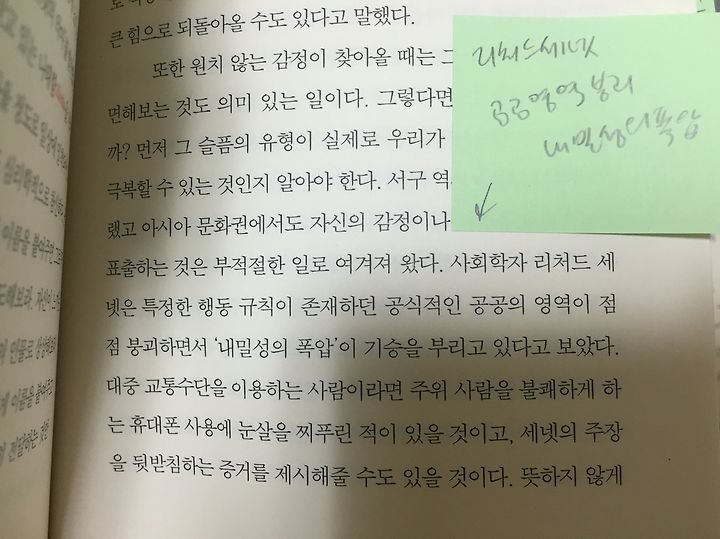 큰 힘으로 되돌아올 수도 있다고 말했다.
또한 원치 않는 감정이 찾아올 때는 그
면해보는 것도 의미 있는 일이다. 그렇다면
까? 먼저 그 슬픔의 유형이 실제로 우리가
극복할 수 있는 것인지 알아야 한다. 서구 역
랬고 아시아 문화권에서도 자신의 감정이나
표출하는 것은 부적절한 일로 여겨져 왔다. 사회학자 리처드 세
넷은 특정한 행동 규칙이 존재하던 공식적인 공공의 영역이 점
점 붕괴하면서 ‘내밀성의 폭압’이 기승을 부리고 있다고 보았다.
대중 교통수단을 이용하는 사람이라면 주위 사람을 불쾌하게 하
는 휴대폰 사용에 눈살을 찌푸린 적이 있을 것이고, 세넷의 주장
을 뒷받침하는 증거를 제시해줄 수도 있을 것이다. 뜻하지 않게
리처드 세넷
공공영역 붕괴
내밀성의 폭압